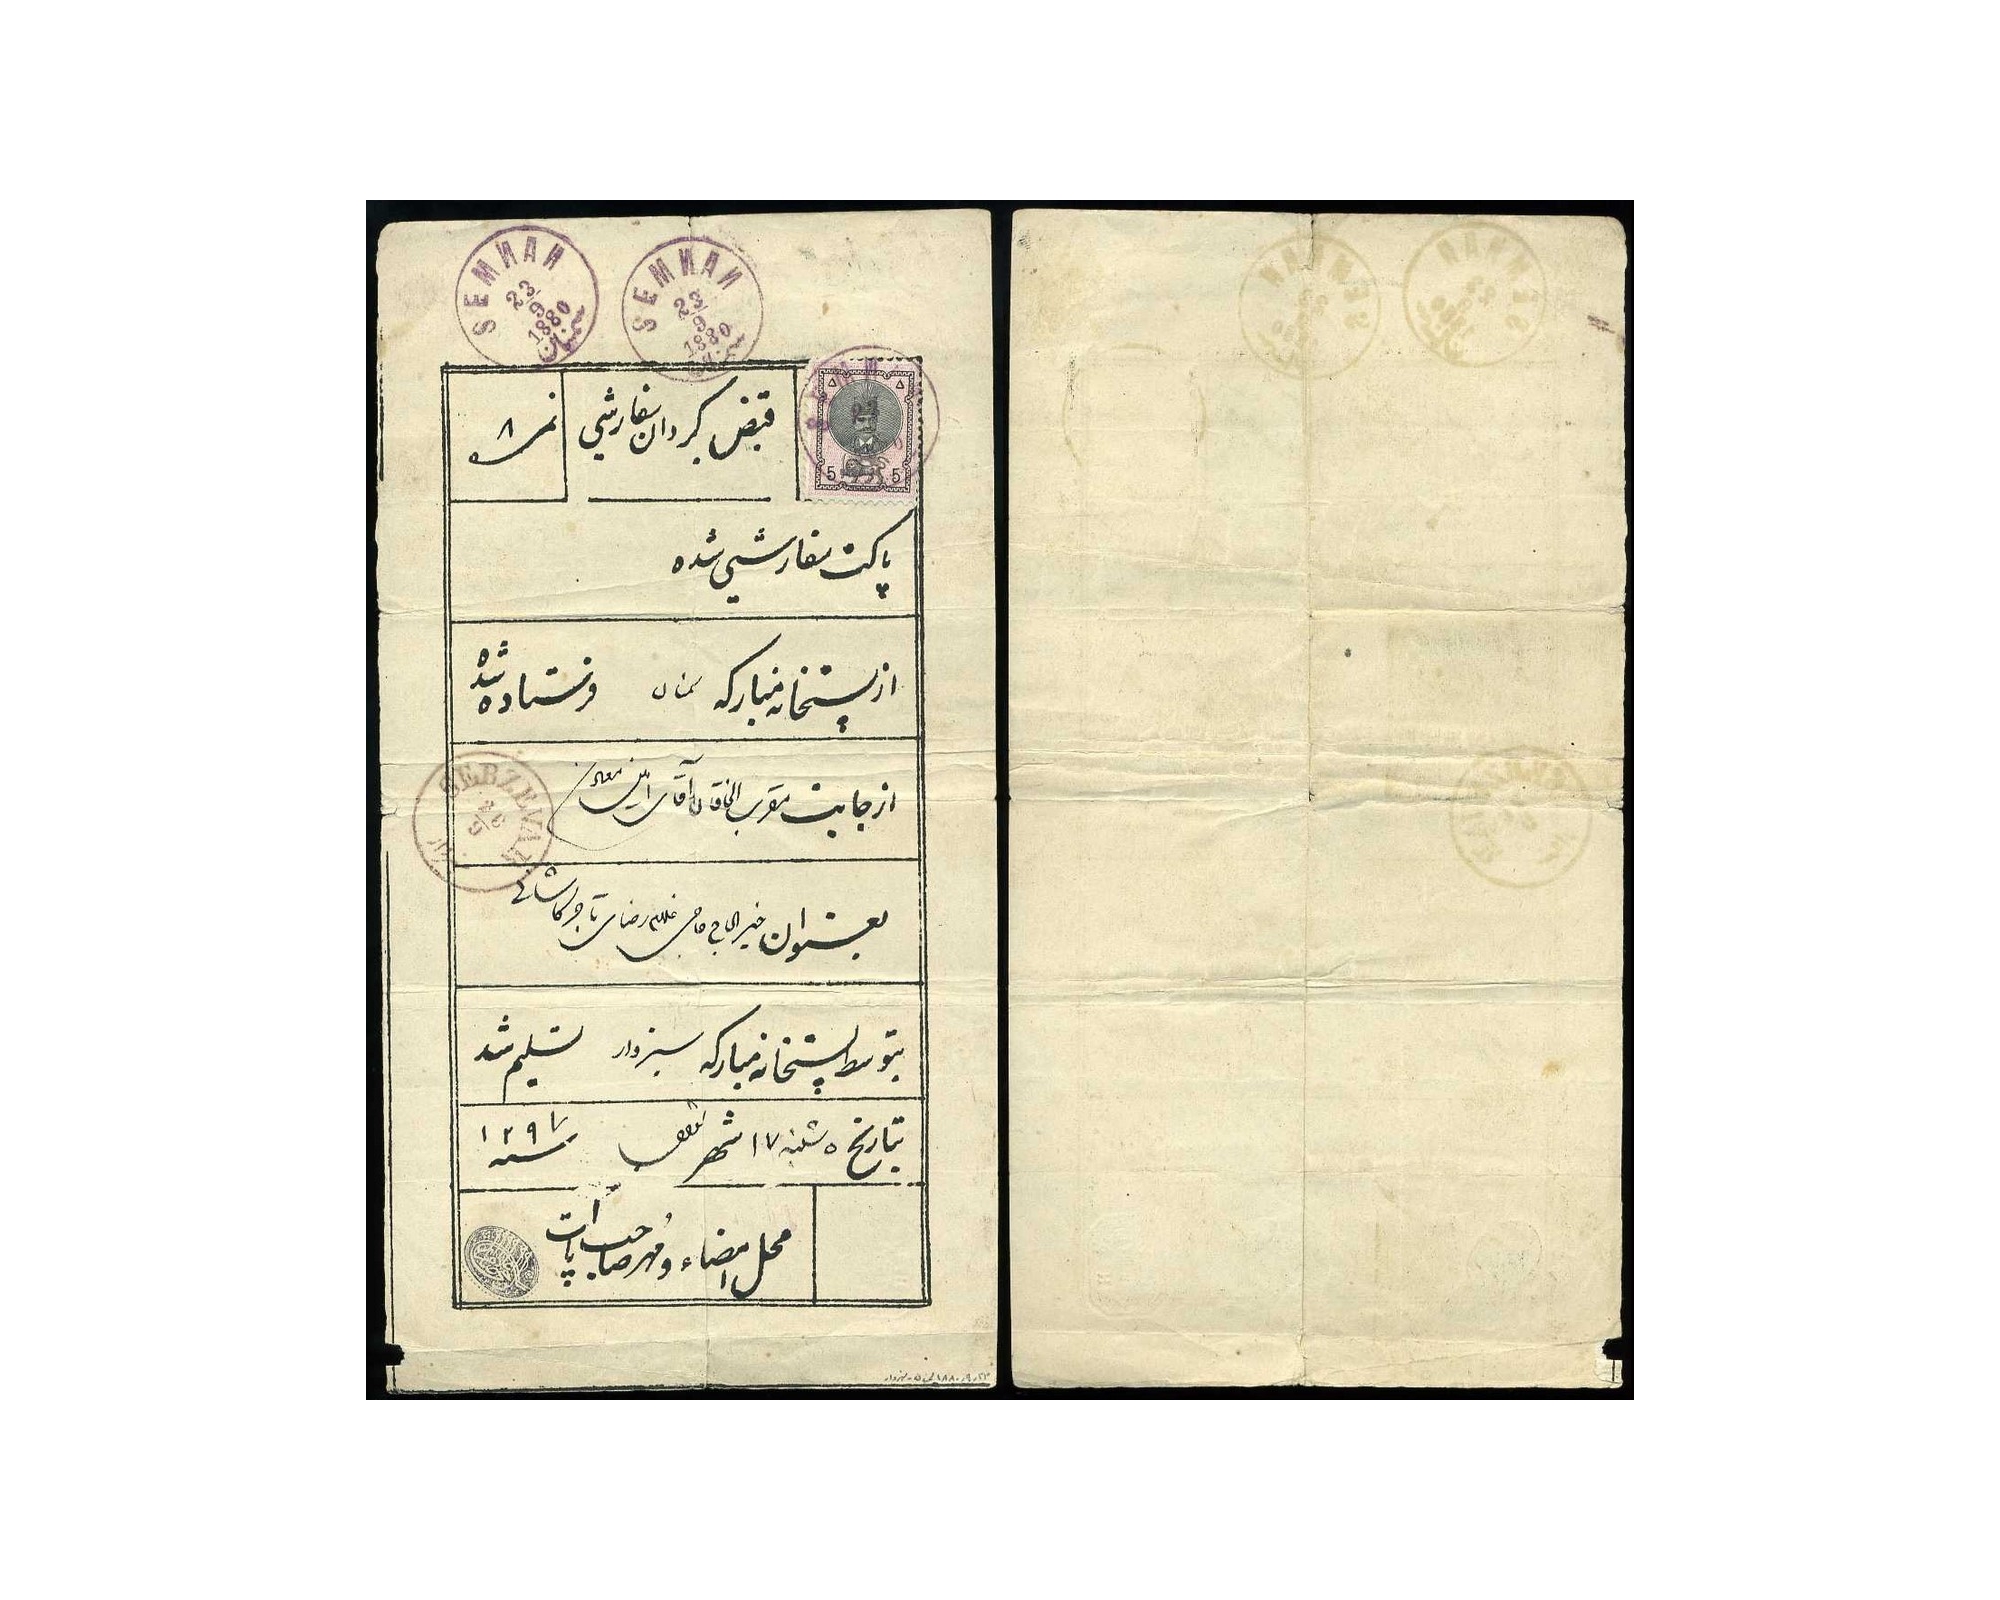 SEMNAN 23/9 1880 سمنان
SEMNAN 23/9 1880
5 5
قبض برگردان سفارشی
نمره ۸
پاکت سفارشی شده
از پستخانه مبارکه سمنان فرستاده شده
از جانب مقرب الخاقان آقای امین
SEBZEVAR
بعنوان خیر الحاج حاجی غلامرضای تاجر کاشانی
بتوسط پستخانه مبارکه سبزوار تسلیم شد
بتاریخ ۵ شنبه ۱۷ شهر سنه ۱۲۹۷
محل امضاء و مهر صاحب پاکت